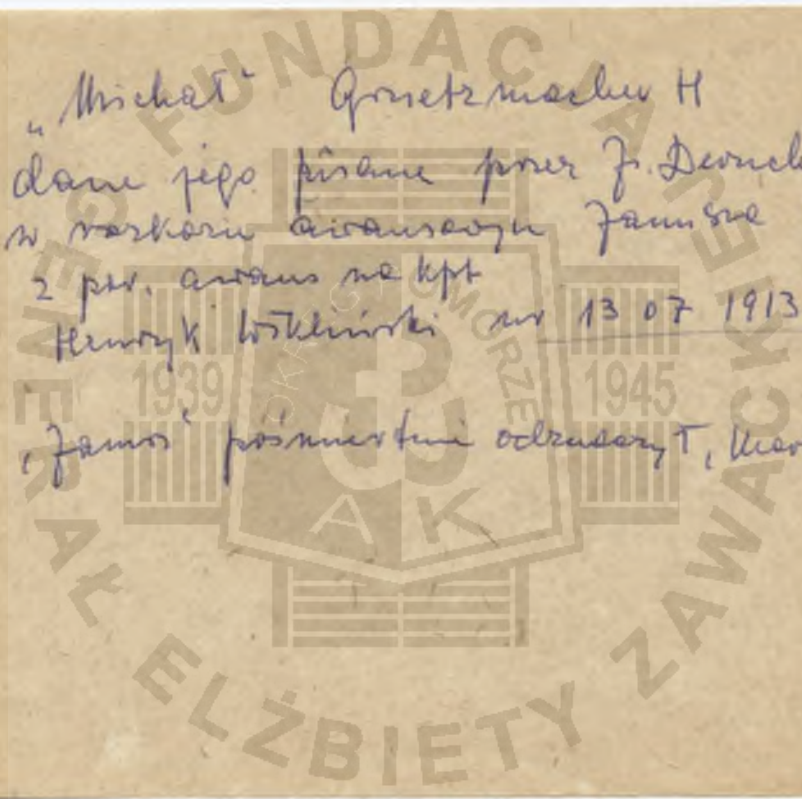 „Michał" Gruetzmacher H
dane jego pisane przez
w rozkazie awansowym Janusza
z por. awans na kpt
Henryk ur 13 07 1913
pośmiertnie odznaczył
FUNDACJA GENERAŁ ELŻBIETY ZAWACKIEJ
OKRĘG POMORZE
1939 1945
AK